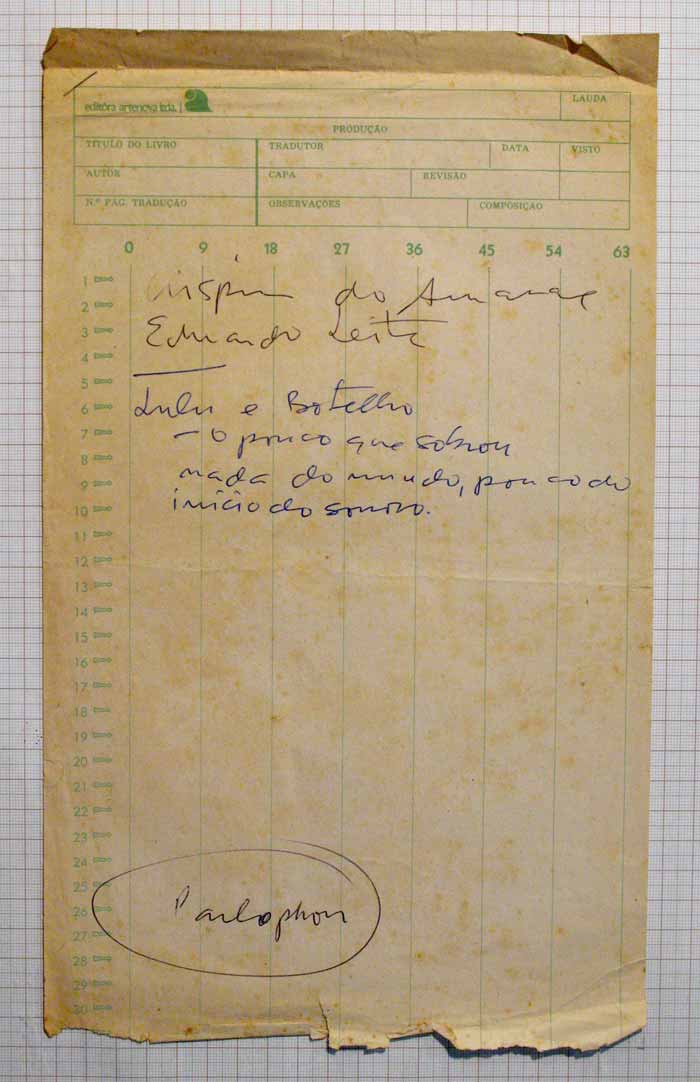 editôra artenova ltda.
LAUDA
PRODUÇÃO
TÍTULO DO LIVRO TRADUTOR DATA VISTO
AUTOR CAPA REVISÃO
N.º PÁG. TRADUÇÃO OBSERVAÇÕES COMPOSIÇÃO
0 9 18 27 36 45 54 63
1
2 Crispim do Amaral
3 Eduardo Leite
4
5
6 Lulu e Botelho
7 - O pouco que sobrou
8
9 nada do mundo, pouco do
10 início do sonoro.
11
12
13
14
15
16
17
18
19
20
21
22
23
24
25
26 Parlophon
27
28
29
30